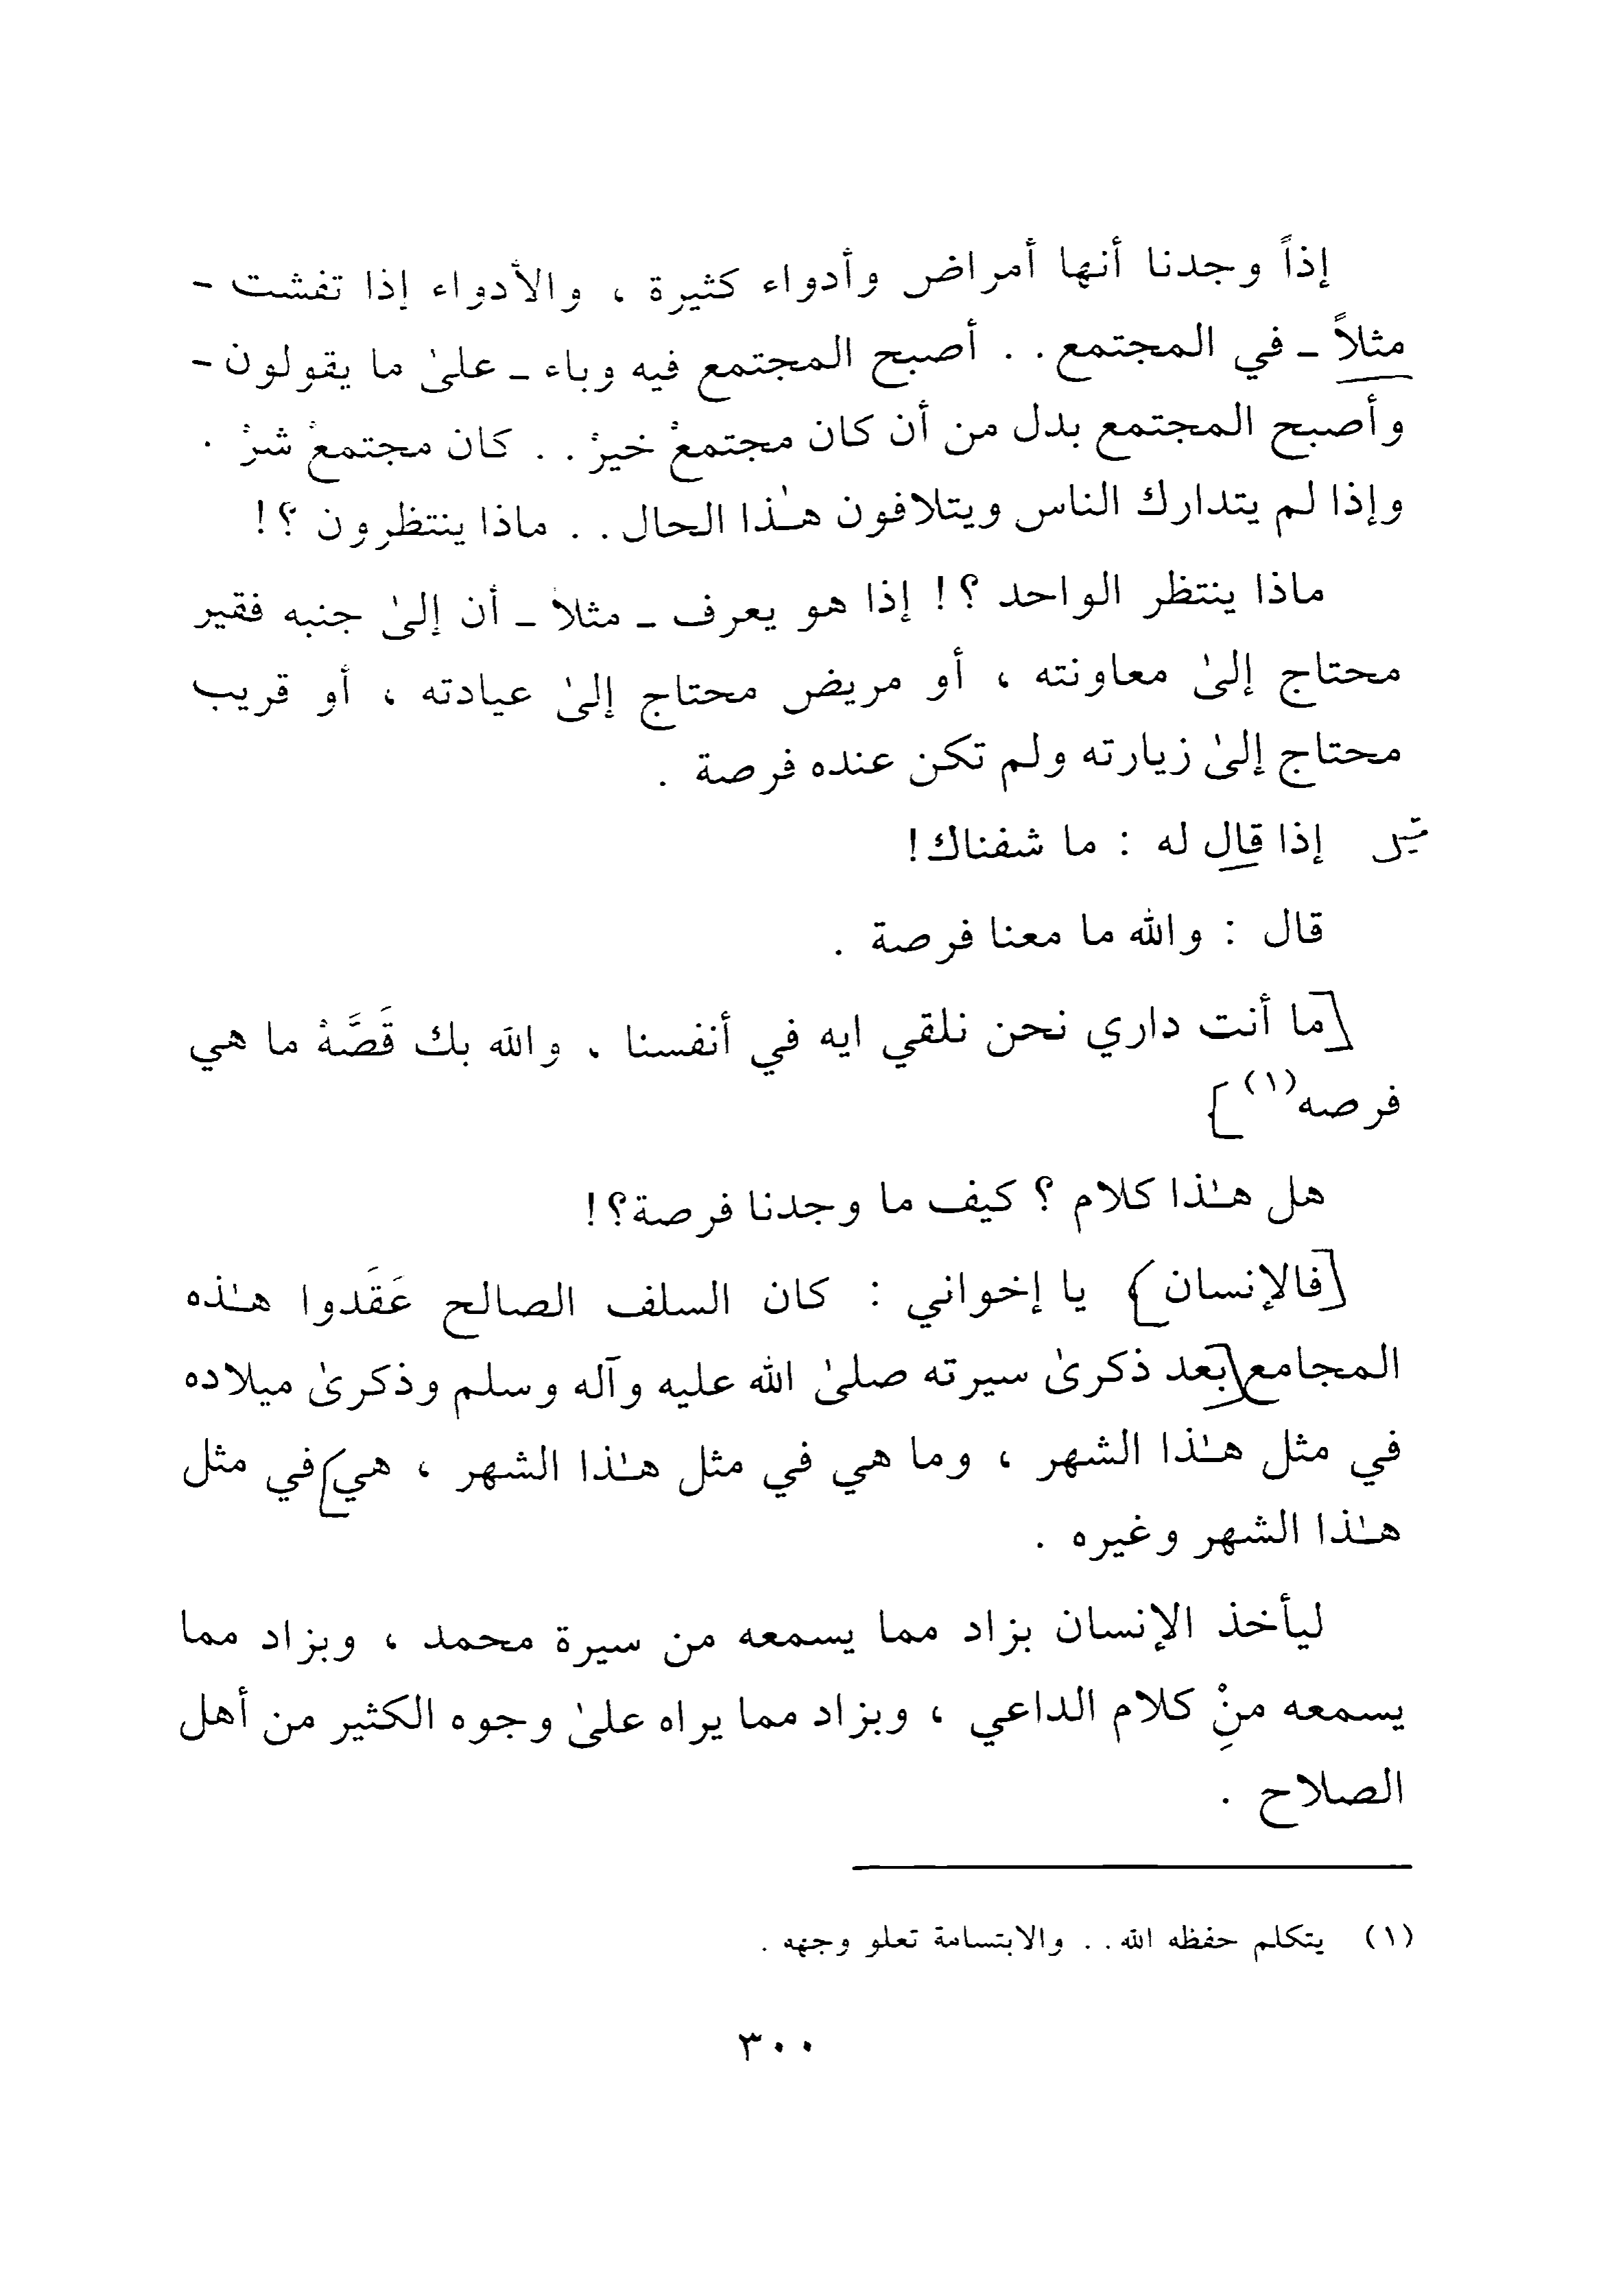 إذاً وجدنا أنها أمراض وأدواء كثيرة ، والأدواء إذا تفشت -
مثلاً - في المجتمع . . أصبح المجتمع فيه وباء - علىٰ ما يقولون -
وأصبح المجتمع بدل من أن كان مجتمعْ خيرْ . . كان مجتمعْ شرْ .
وإذا لم يتدارك الناس ويتلافون هـٰذا الحال . . ماذا ينتظرون ؟!
ماذا ينتظر الواحد ؟! إذا هو يعرف - مثلاً - أن إلىٰ جنبه فقير
محتاج إلىٰ معاونته ، أو مريض محتاج إلىٰ عيادته ، أو قريب
محتاج إلىٰ زيارته ولم تكن عنده فرصة .
إذا قال له : ما شفناك!
قال : والله ما معنا فرصة .
[ما أنت داري نحن نلقي ايه في أنفسنا ، والله بك قَصَّهْ ما هي
فرصه(١)]
هل هـٰذا كلام ؟ كيف ما وجدنا فرصة؟!
[فالإنسان] يا إخواني : كان السلف الصالح عَقَدوا هـٰذه
المجامع [بعد ذكرىٰ سيرته صلىٰ الله عليه وآله وسلم وذكرىٰ ميلاده
في مثل هـٰذا الشهر ، وما هي في مثل هـٰذا الشهر ، هي] في مثل
هـٰذا الشهر وغيره .
ليأخذ الإنسان بزاد مما يسمعه من سيرة محمد ، وبزاد مما
يسمعه مِنْ كلام الداعي ، وبزاد مما يراه علىٰ وجوه الكثير من أهل
الصلاح .
(١) يتكلم حفظه الله . . والابتسامة تعلو وجهه .
٣٠٠